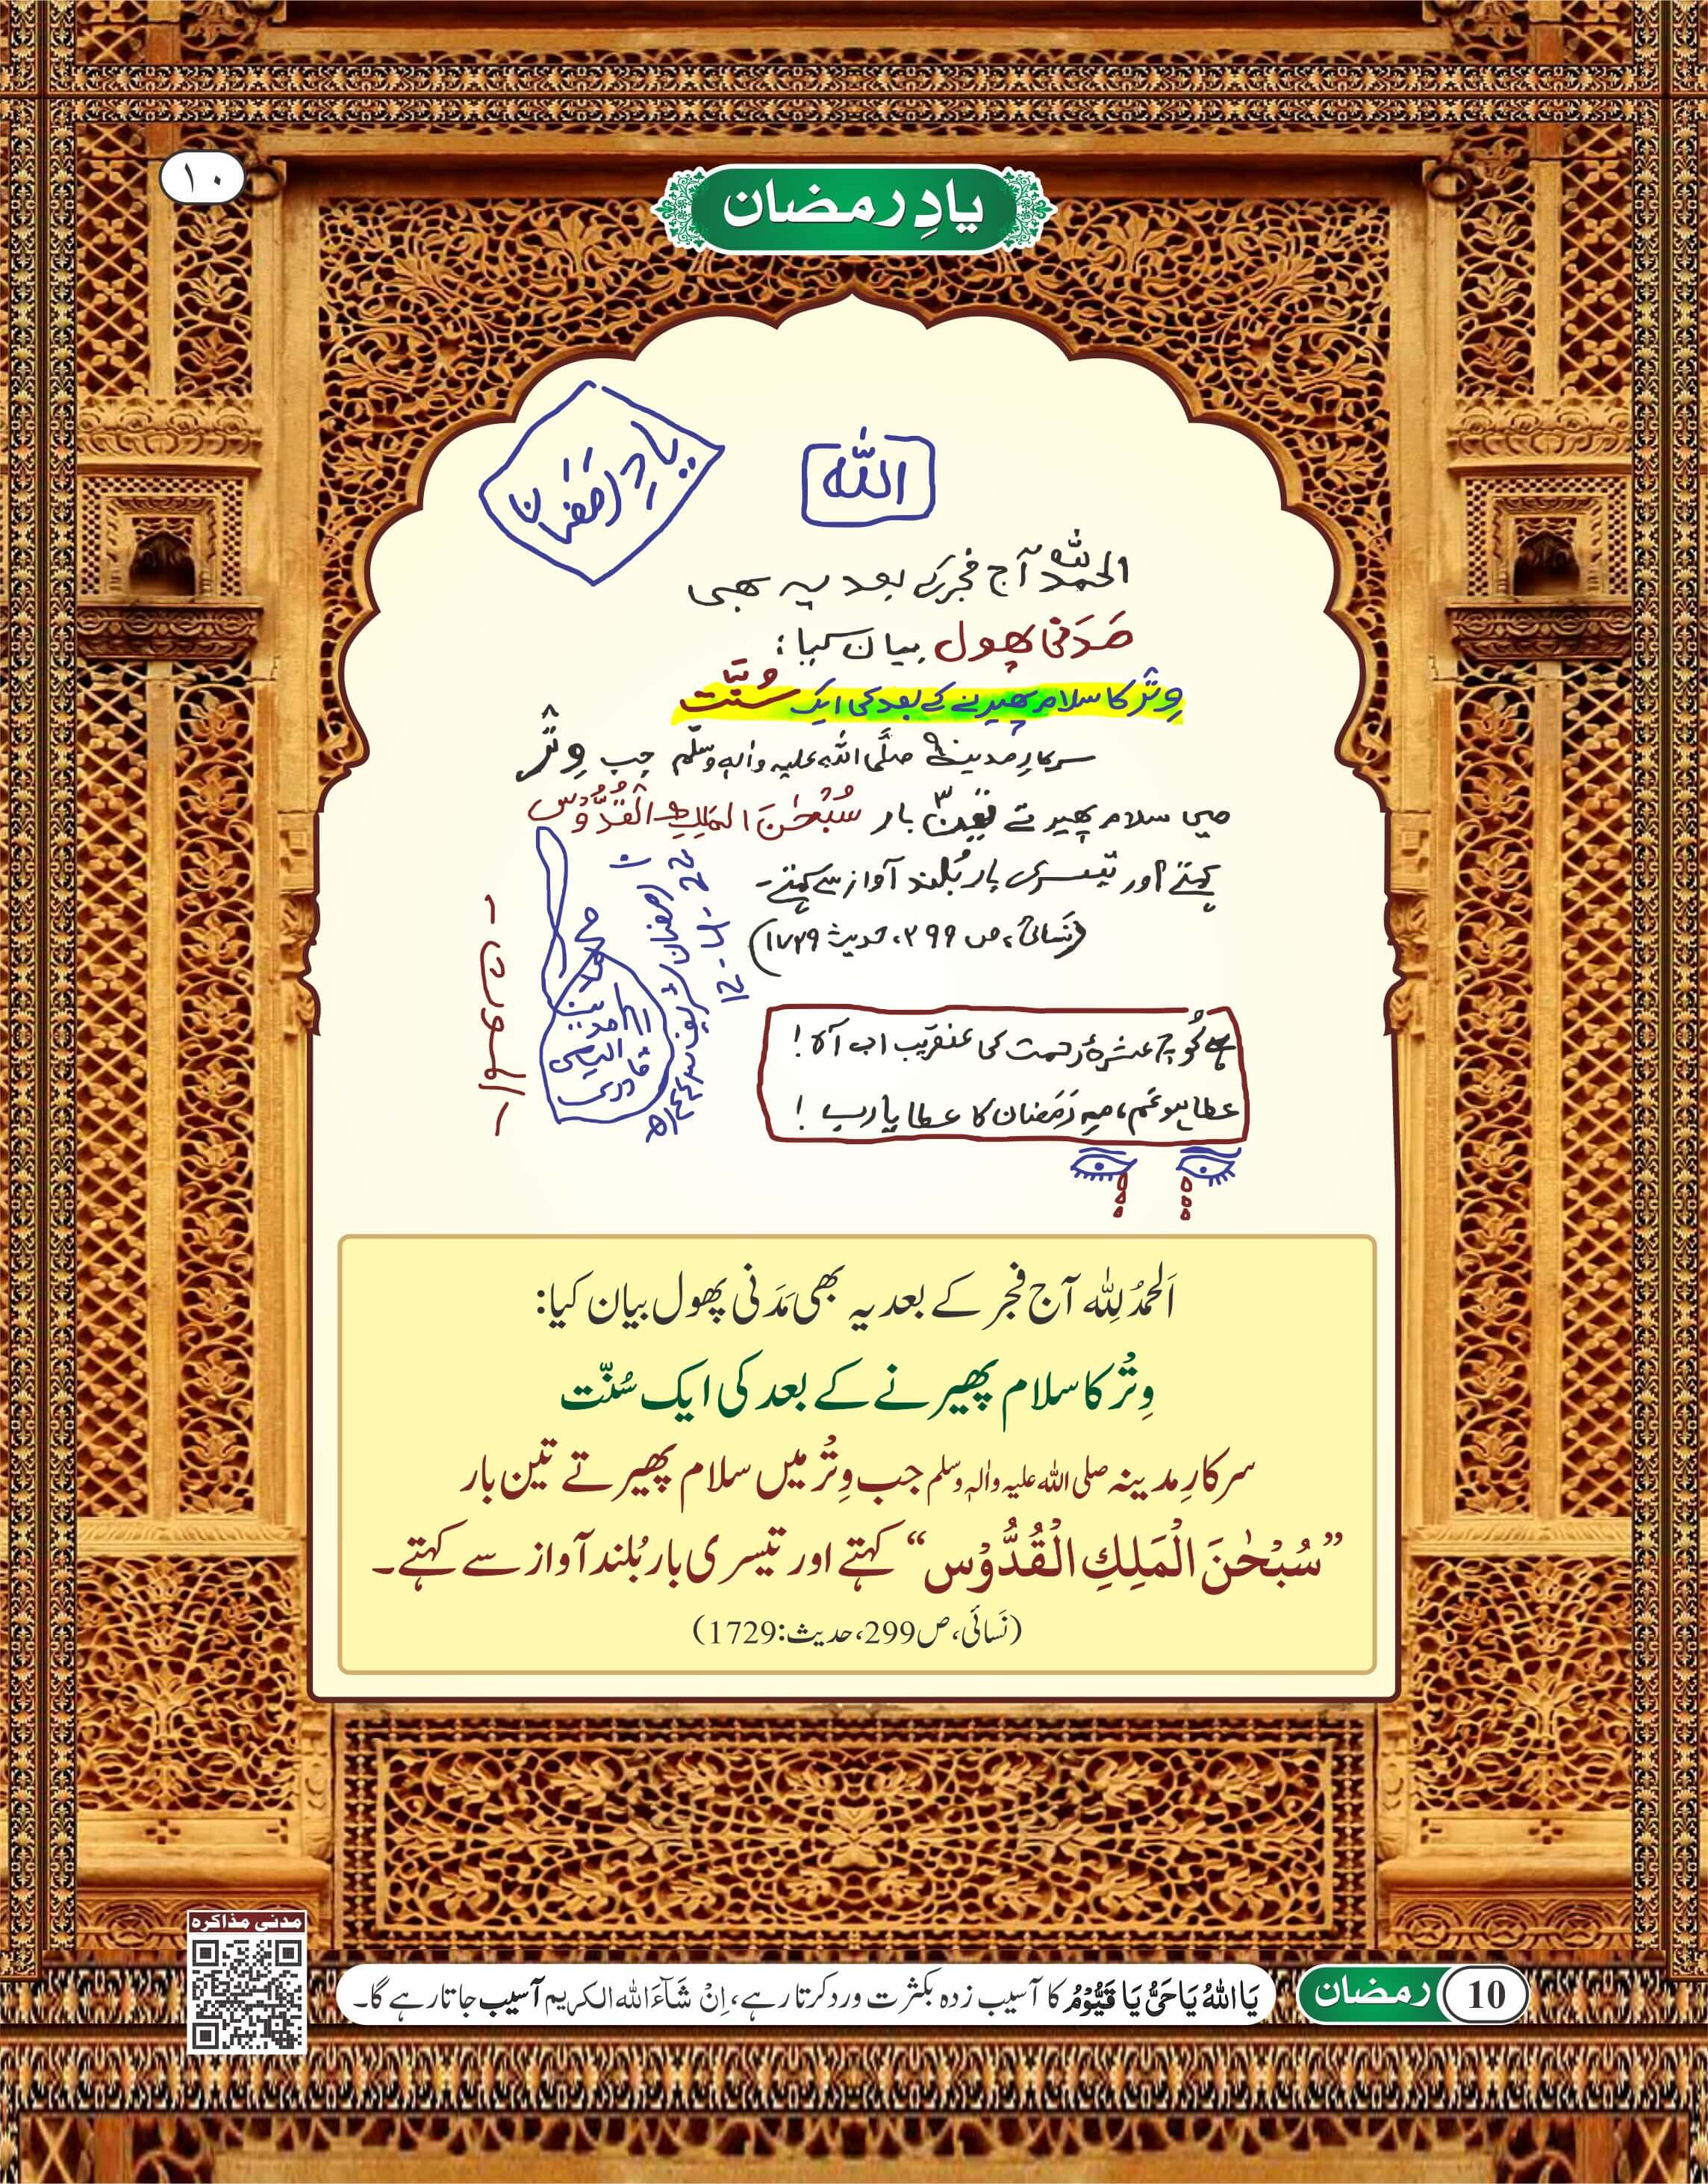 ۱۰
یادِ رمضان
یادِ رَمَضان
اللہ
الحمدللہ آج فجر کے بعد یہ بھی
مَدَنی پھول بیان کیا:
وِتْر کا سلام پھیرنے کے بعد کی ایک سُنّت
سرکارِ مدینہ صلَّی اللہ علیہ واٰلہٖ وسلَّم جب وِتْر
میں سلام پھیرتے تین ۳ بار سُبْحٰنَ المَلِكِ الْقُدُّوْس
کہتے اور تیسری بار بُلند آواز سے کہتے۔
(نَسائی، ص ۲۹۹، حدیث ۱۷۲۹)
ہے کُوچ عشرۂ رَحمت کی عنقریب اب آہ!
عطا ہو غمِ مہِ رَمَضان کا عطا یا رب!
۱۰ رمضان شریف ۱۴۴۳ھ
12-4-22
محمد الیاس
قادری
اَلحمدُ لِلّٰہ آج فجر کے بعد یہ بھی مَدَنی پھول بیان کیا:
وِتْر کا سلام پھیرنے کے بعد کی ایک سُنّت
سرکارِ مدینہ صلی اللہ علیہ واٰلہٖ وسلم جب وِتْر میں سلام پھیرتے تین بار
”سُبْحٰنَ الْمَلِكِ الْقُدُّوْس“ کہتے اور تیسری بار بُلند آواز سے کہتے۔
(نَسائی، ص299، حدیث:1729)
مدنی مذاکرہ
10 رمضان
یَا اَللہُ یَا حَیُّ یَا قَیُّوْمُ کا آسیب زدہ بکثرت ورد کرتا رہے، اِنْ شَآءَ اللہ الکریم آسیب جاتا رہے گا۔